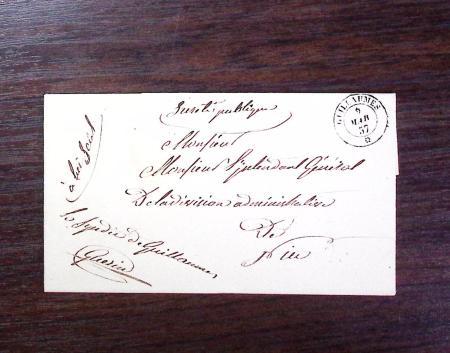 Sureté publique
GUILLAUMES
6
MAR
57
à lui seul
à Monsieur
Monsieur l'intendant Général
De la division administrative
De
Nice
le Syndic de Guillaumes